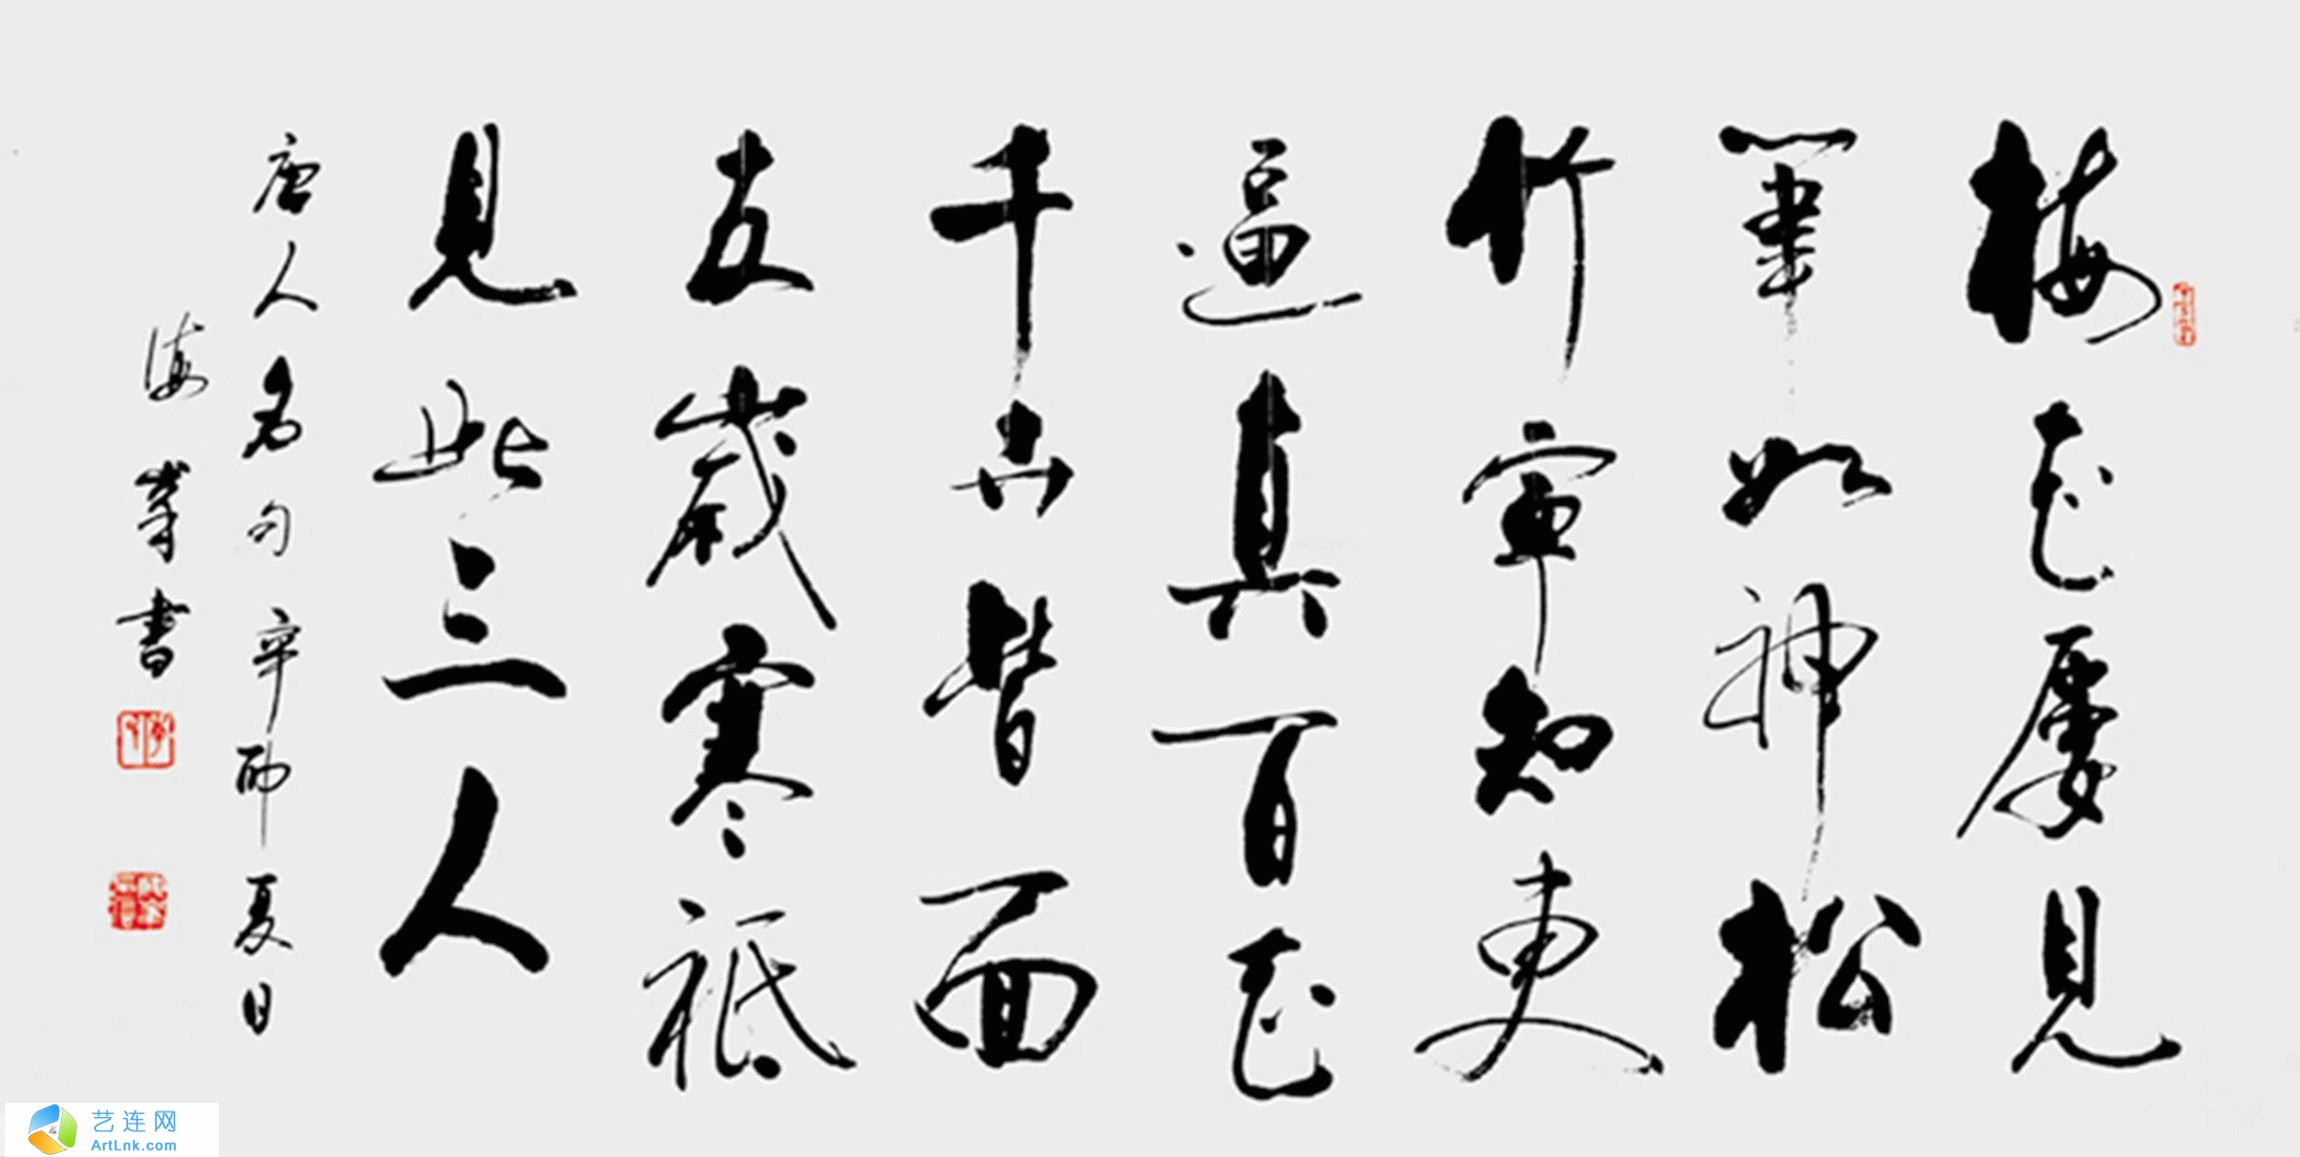 梅花屡見
筆如神松
竹寧知更
逼真百花
千卉皆面
友歲寒祇
見此三人
唐人名句辛卯夏日
海峯書
艺连网
ArtLnk.com